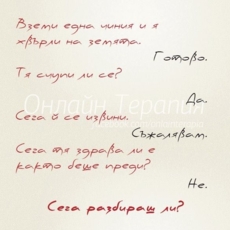 Вземи една чиния и я
хвърли на земята.
Готово.
Тя счупи ли се?
Онлайн Терапия
Да.
Сега ѝ се извини.
Съжалявам.
Сега тя здрава ли е
както беше преди?
Не.
Сега разбираш ли?